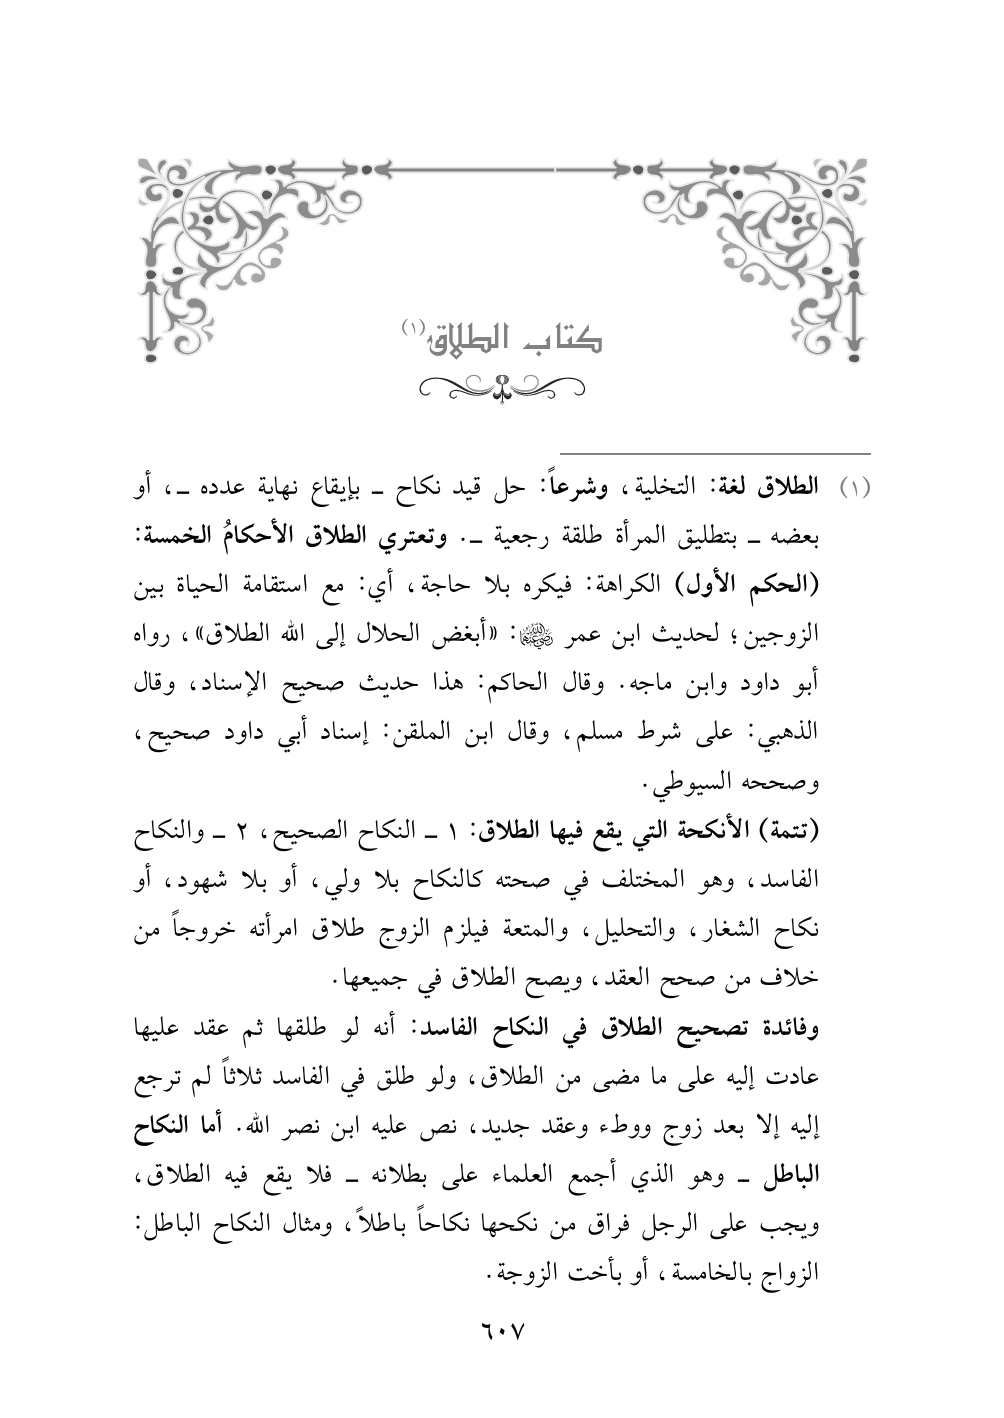 كتاب الطلاق(١)
(١) الطلاق لغة: التخلية، وشرعاً: حل قيد نكاح ـ بإيقاع نهاية عدده ـ، أو
بعضه ـ بتطليق المرأة طلقة رجعية ـ. وتعتري الطلاق الأحكامُ الخمسة:
(الحكم الأول) الكراهة: فيكره بلا حاجة، أي: مع استقامة الحياة بين
الزوجين؛ لحديث ابن عمر رضي الله عنهما: «أبغض الحلال إلى الله الطلاق»، رواه
أبو داود وابن ماجه. وقال الحاكم: هذا حديث صحيح الإسناد، وقال
الذهبي: على شرط مسلم، وقال ابن الملقن: إسناد أبي داود صحيح،
وصححه السيوطي.
(تتمة) الأنكحة التي يقع فيها الطلاق: ١ ـ النكاح الصحيح، ٢ ـ والنكاح
الفاسد، وهو المختلف في صحته كالنكاح بلا ولي، أو بلا شهود، أو
نكاح الشغار، والتحليل، والمتعة فيلزم الزوج طلاق امرأته خروجاً من
خلاف من صحح العقد، ويصح الطلاق في جميعها.
وفائدة تصحيح الطلاق في النكاح الفاسد: أنه لو طلقها ثم عقد عليها
عادت إليه على ما مضى من الطلاق، ولو طلق في الفاسد ثلاثاً لم ترجع
إليه إلا بعد زوج ووطء وعقد جديد، نص عليه ابن نصر الله. أما النكاح
الباطل ـ وهو الذي أجمع العلماء على بطلانه ـ فلا يقع فيه الطلاق،
ويجب على الرجل فراق من نكحها نكاحاً باطلاً، ومثال النكاح الباطل:
الزواج بالخامسة، أو بأخت الزوجة.
٦٠٧